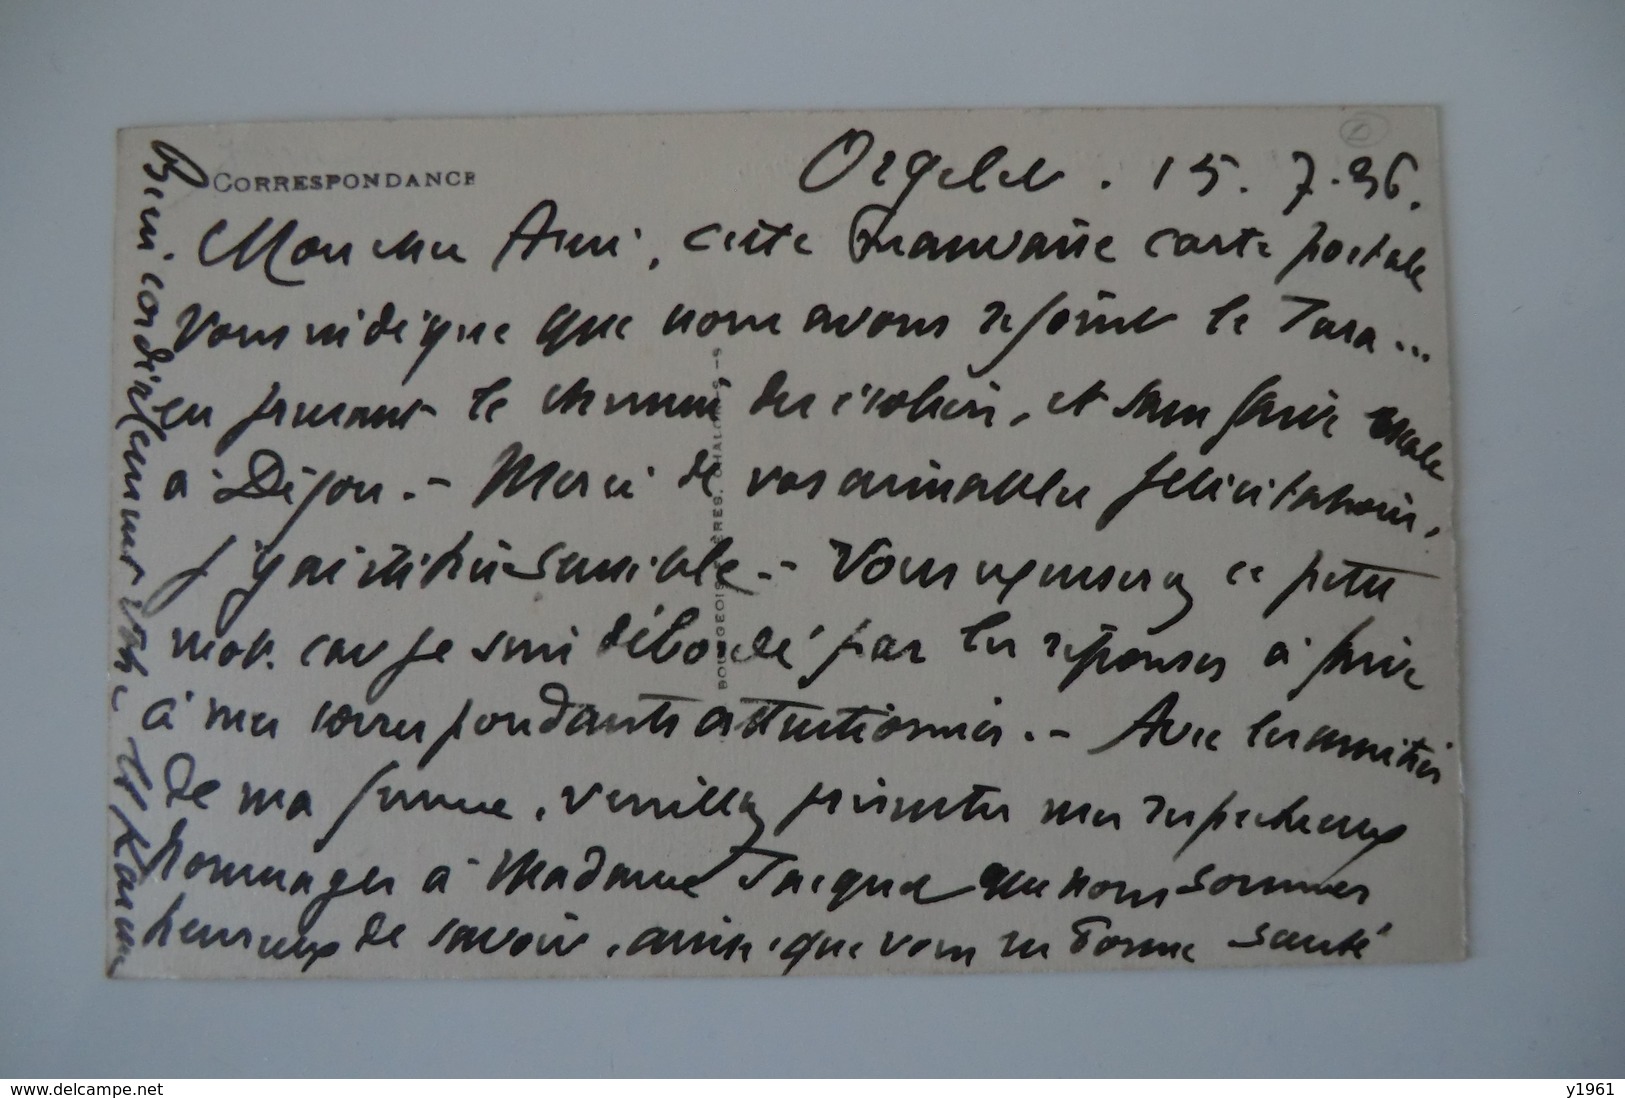 CORRESPONDANCE
Orgelet. 15.7.36.
Mon cher Ami, cette mauvaise carte postale
vous indique que nous avons rejoint le Jura...
en prenant le chemin des écoliers, et sans faire escale
à Dijon.- Merci de vos aimables félicitations,
j'y ai été très sensible.- Vous excuserez ce petit
mot. car je suis débordé par les réponses à faire
à mes correspondants attentionnés.- Avec les amitiés
de ma femme, veuillez présenter mes respectueux
hommages à Madame Jacques que nous sommes
heureux de savoir, ainsi que vous en bonne santé
Bien cordialement votre
BOURGEOIS FRÈRES, CHALON-S-S
www.delcampe.net
y1961